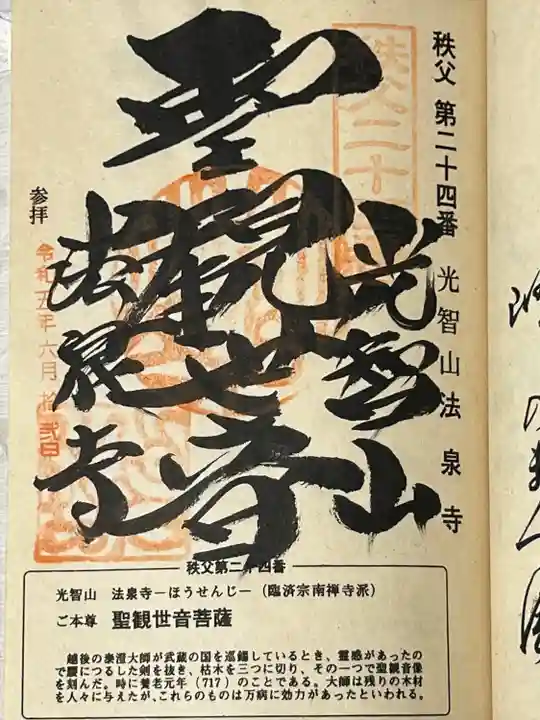 秩父 第二十四番 光智山法泉寺
秩父二十
光智山
聖観世音
法泉寺
参拝
令和五年六月拾弐日
秩父第二十四番
光智山 法泉寺−ほうせんじ−(臨済宗南禅寺派)
ご本尊 聖観世音菩薩
越後の泰澄大師が武蔵の国を巡錫しているとき、霊感があったの
で腰につるした剣を抜き、枯木を三つに切り、その一つで聖観音像
を刻んだ。時に養老元年(717)のことである。大師は残りの木材
を人々に与えたが、これらのものは万病に効力があったといわれる。